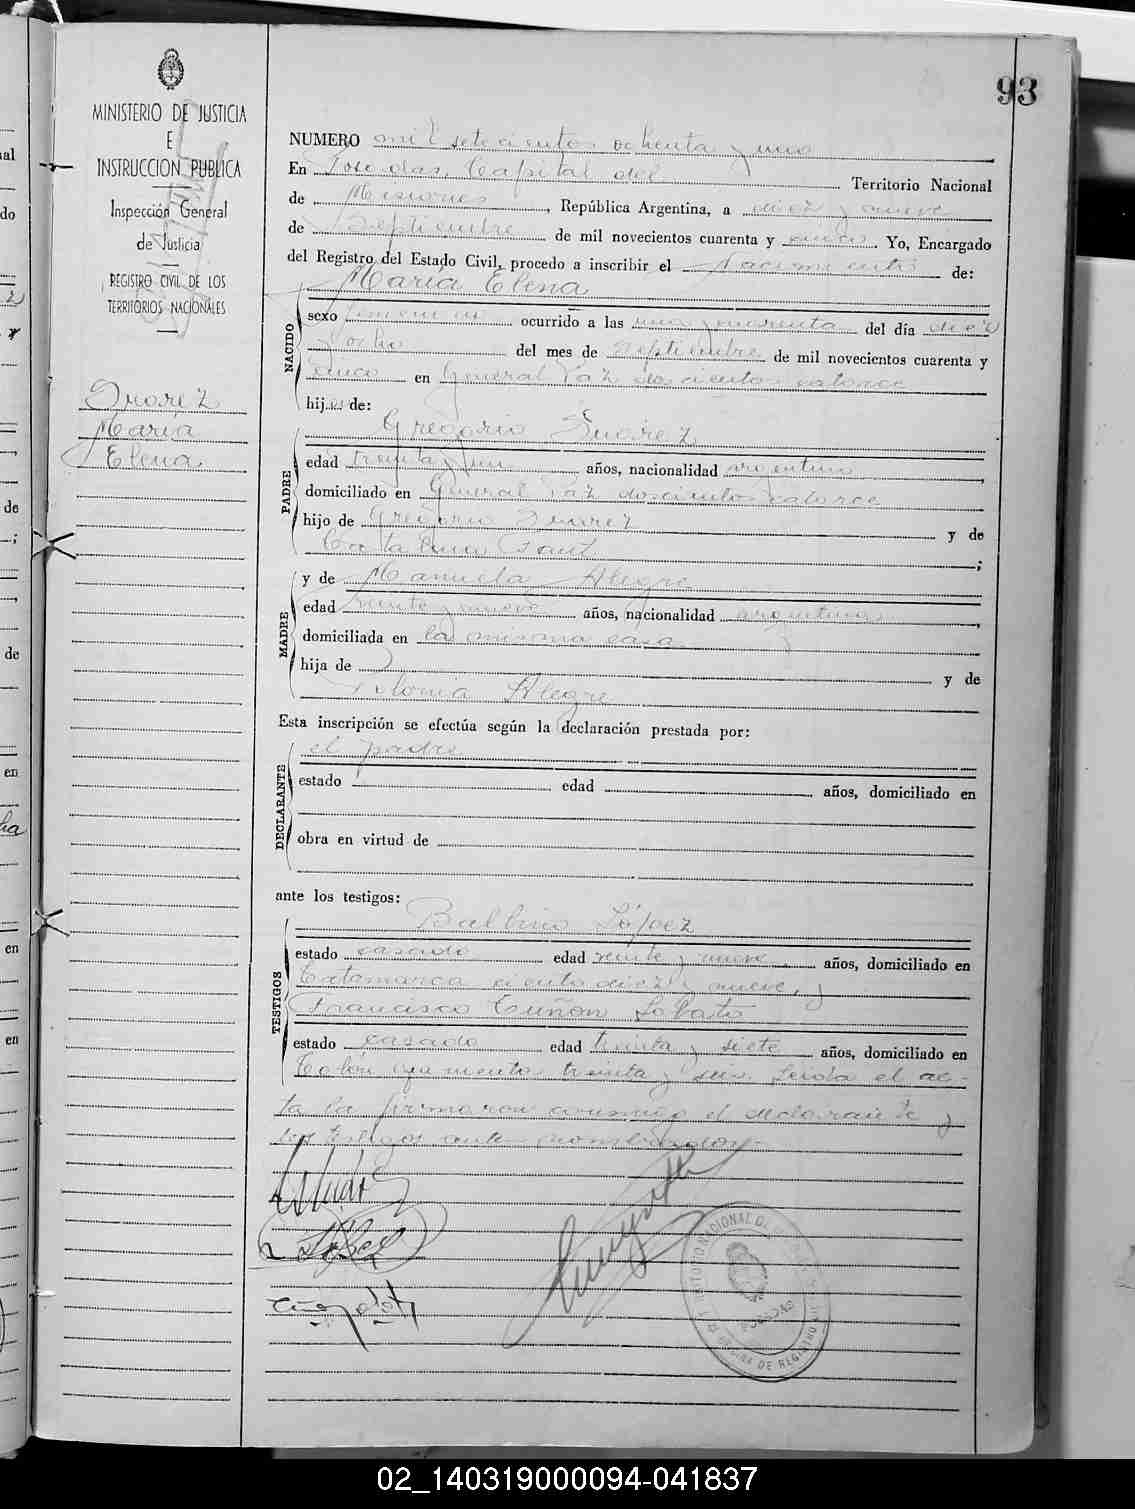 93
MINISTERIO DE JUSTICIA
E
INSTRUCCION PUBLICA
Inspección General
de Justicia
REGISTRO CIVIL DE LOS
TERRITORIOS NACIONALES
Suarez
María
Elena
NUMERO mil setecientos ochenta y uno
En Posadas Capital del Territorio Nacional
de Misiones, República Argentina, a diez y nueve
de Septiembre de mil novecientos cuarenta y cinco. Yo, Encargado
del Registro del Estado Civil, procedo a inscribir el Nacimiento de:
María Elena
NACIDO
sexo femenino ocurrido a las una y cuarenta del día diez
y ocho del mes de Septiembre de mil novecientos cuarenta y
cinco en General Paz doscientos catorce
hija de:
Gregorio Suarez
PADRE
edad treinta y un años, nacionalidad argentino
domiciliado en General Paz doscientos catorce
hijo de Gregorio Suarez y de
Catalina ;
MADRE
y de Manuela Alegre
edad veinte y nueve años, nacionalidad argentina
domiciliada en la misma casa
hija de y de
Polonia Alegre
Esta inscripción se efectúa según la declaración prestada por:
el padre
DECLARANTE
estado edad años, domiciliado en
obra en virtud de
ante los testigos:
Balbino López
TESTIGOS
estado casado edad veinte y nueve años, domiciliado en
Catamarca ciento diez y nueve, y
Francisco Cuñan Lobato
estado casado edad treinta y siete años, domiciliado en
Colón quinientos treinta y seis. Leída el ac-
ta la firmaron conmigo el declarante y
los testigos ante nombrados.-
POSADAS
02_140319000094-041837